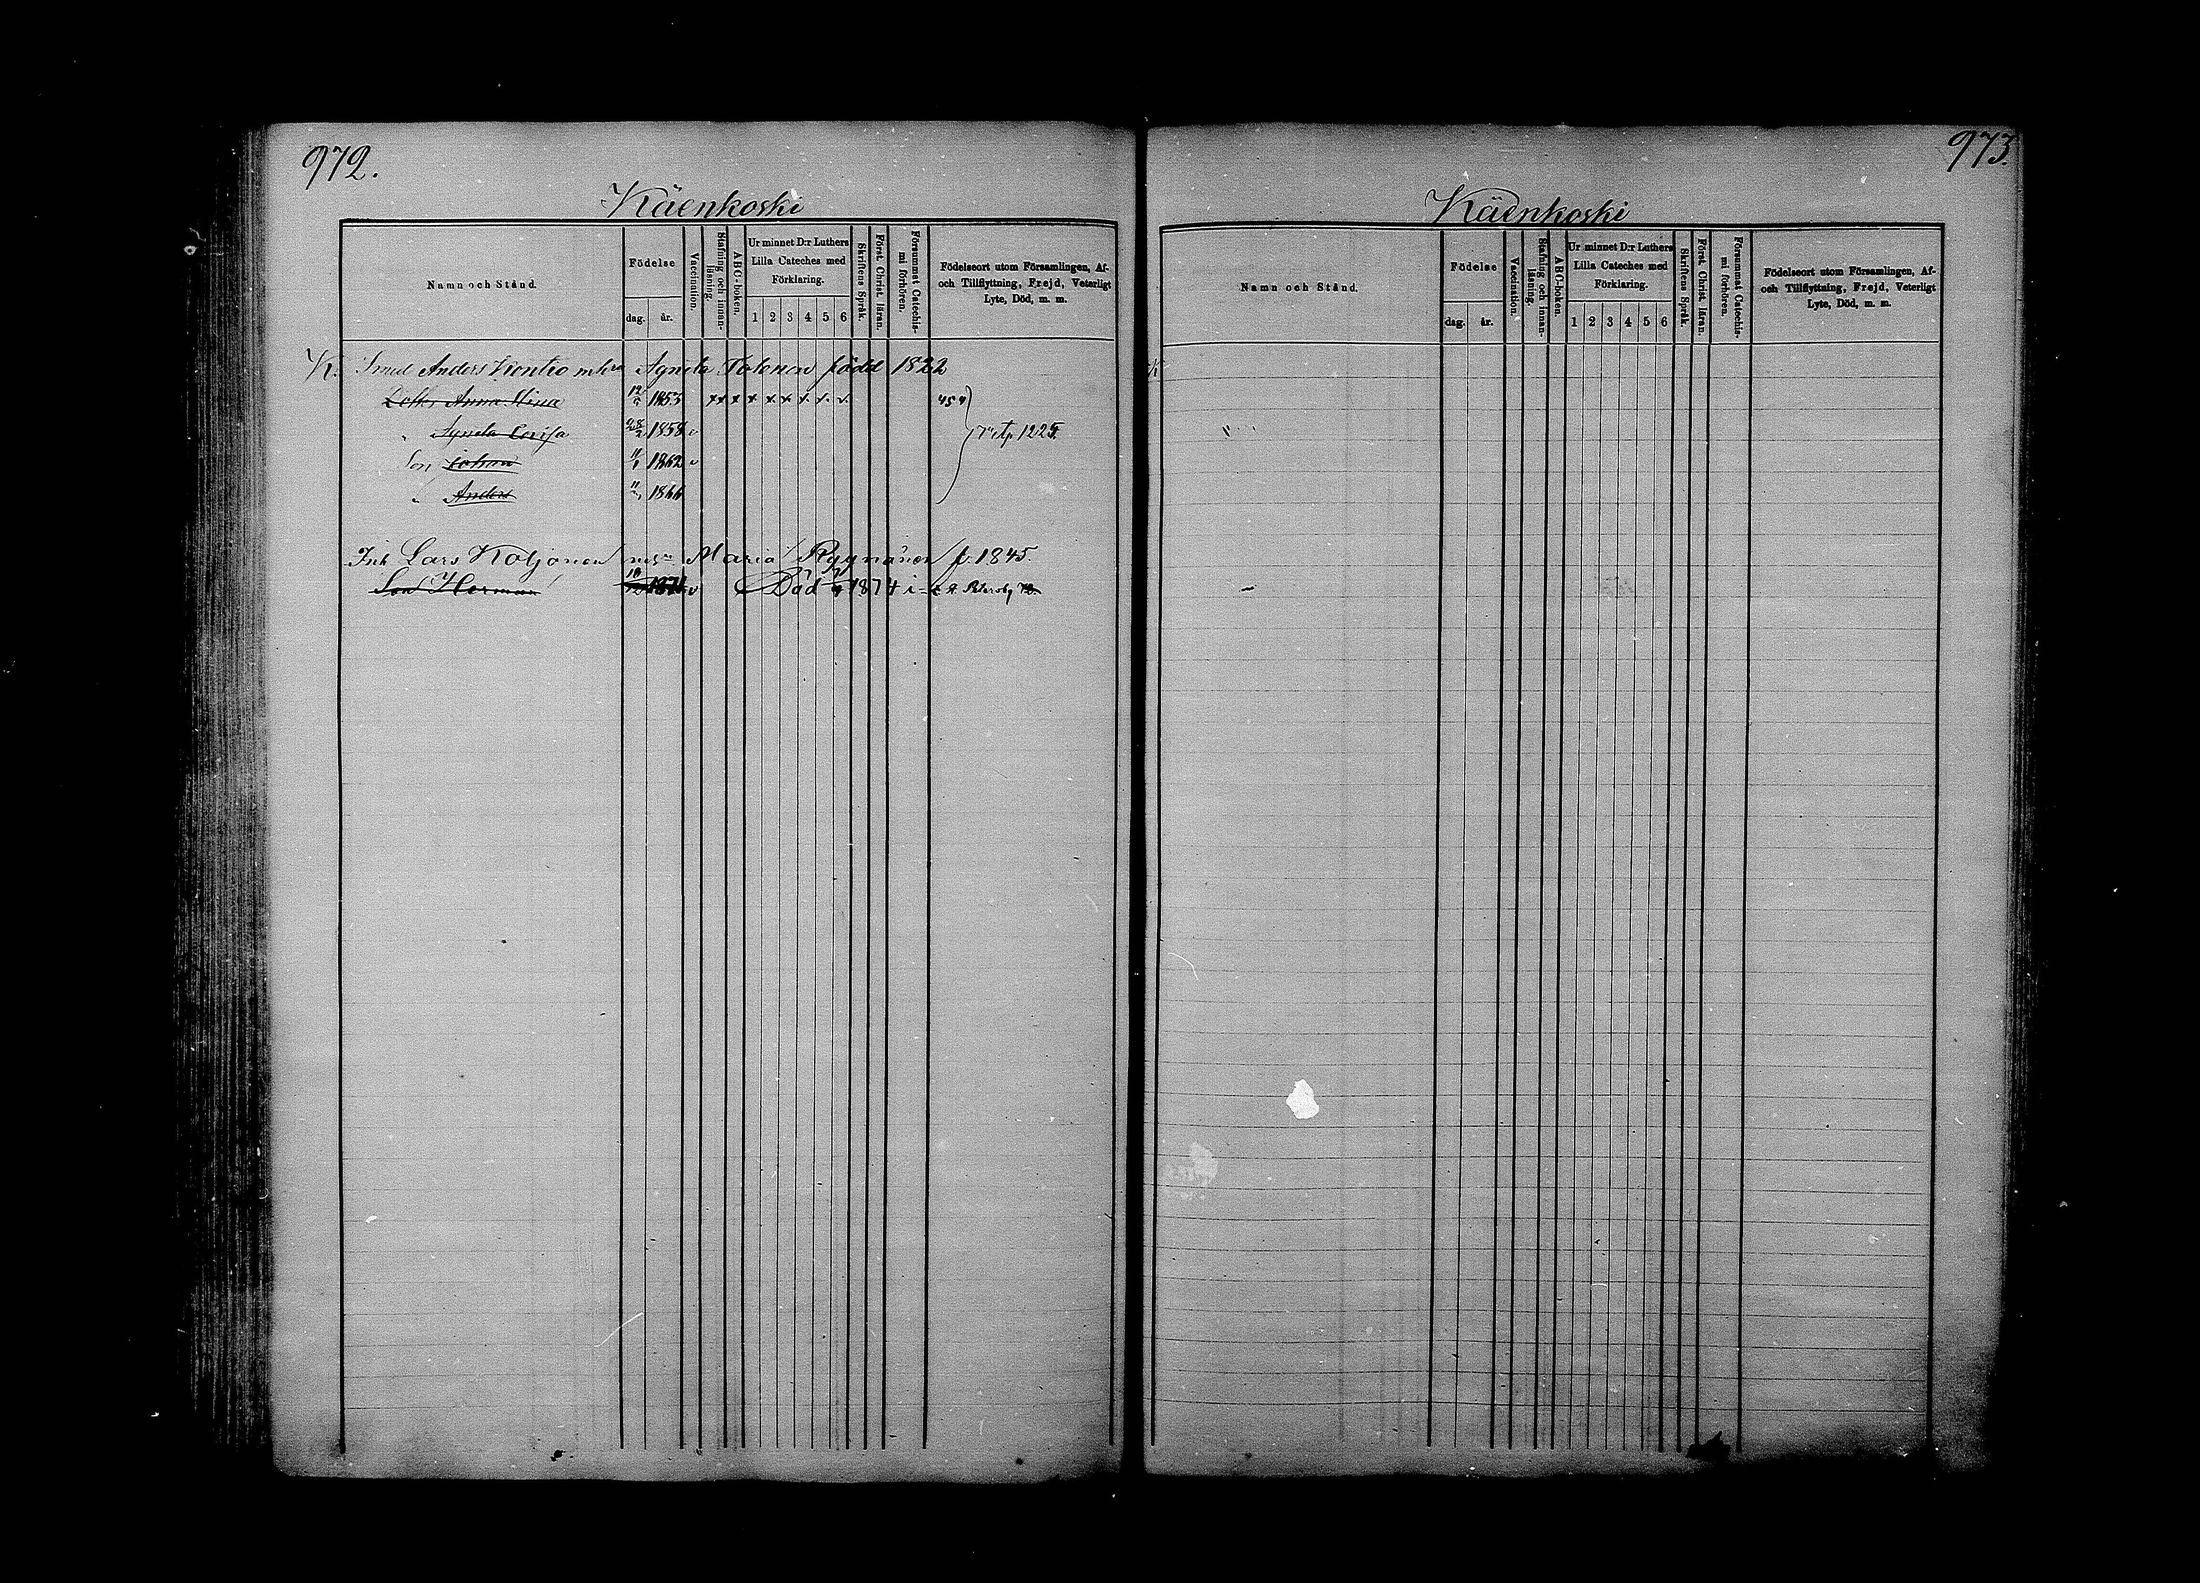 972.
Käenkoski
Namn och Stånd.
Födelse
dag. år.
Vaccination.
Stafning och innanläsning.
ABC-boken.
Ur minnet D:r Luthers
Lilla Cateches med
Förklaring.
1 2 3 4 5 6
Skriftens Språk.
Först. Christ. läran.
Försummat Catechismi förhören.
Födelseort utom Församlingen, Af-
och Tillflyttning, Frejd, Veterligt
Lyte, Död, m. m.
K. Anders Kontio Agneta Tolonen född 1822
Anna Stina 1853 x x x x x x x x x 454
" Agneta Lovisa 1858 v 1225
Son Johan 1862 v
" Anders 1866
Inh Lars Koljonen Maria Ryynänen f. 1845.
Son Herman v Död 1874 i
973.
Käenkoski
Namn och Stånd.
Födelse
dag. år.
Vaccination.
Stafning och innanläsning.
ABC-boken.
Ur minnet D:r Luthers
Lilla Cateches med
Förklaring.
1 2 3 4 5 6
Skriftens Språk.
Först. Christ. läran.
Försummat Catechismi förhören.
Födelseort utom Församlingen, Af-
och Tillflyttning, Frejd, Veterligt
Lyte, Död, m. m.